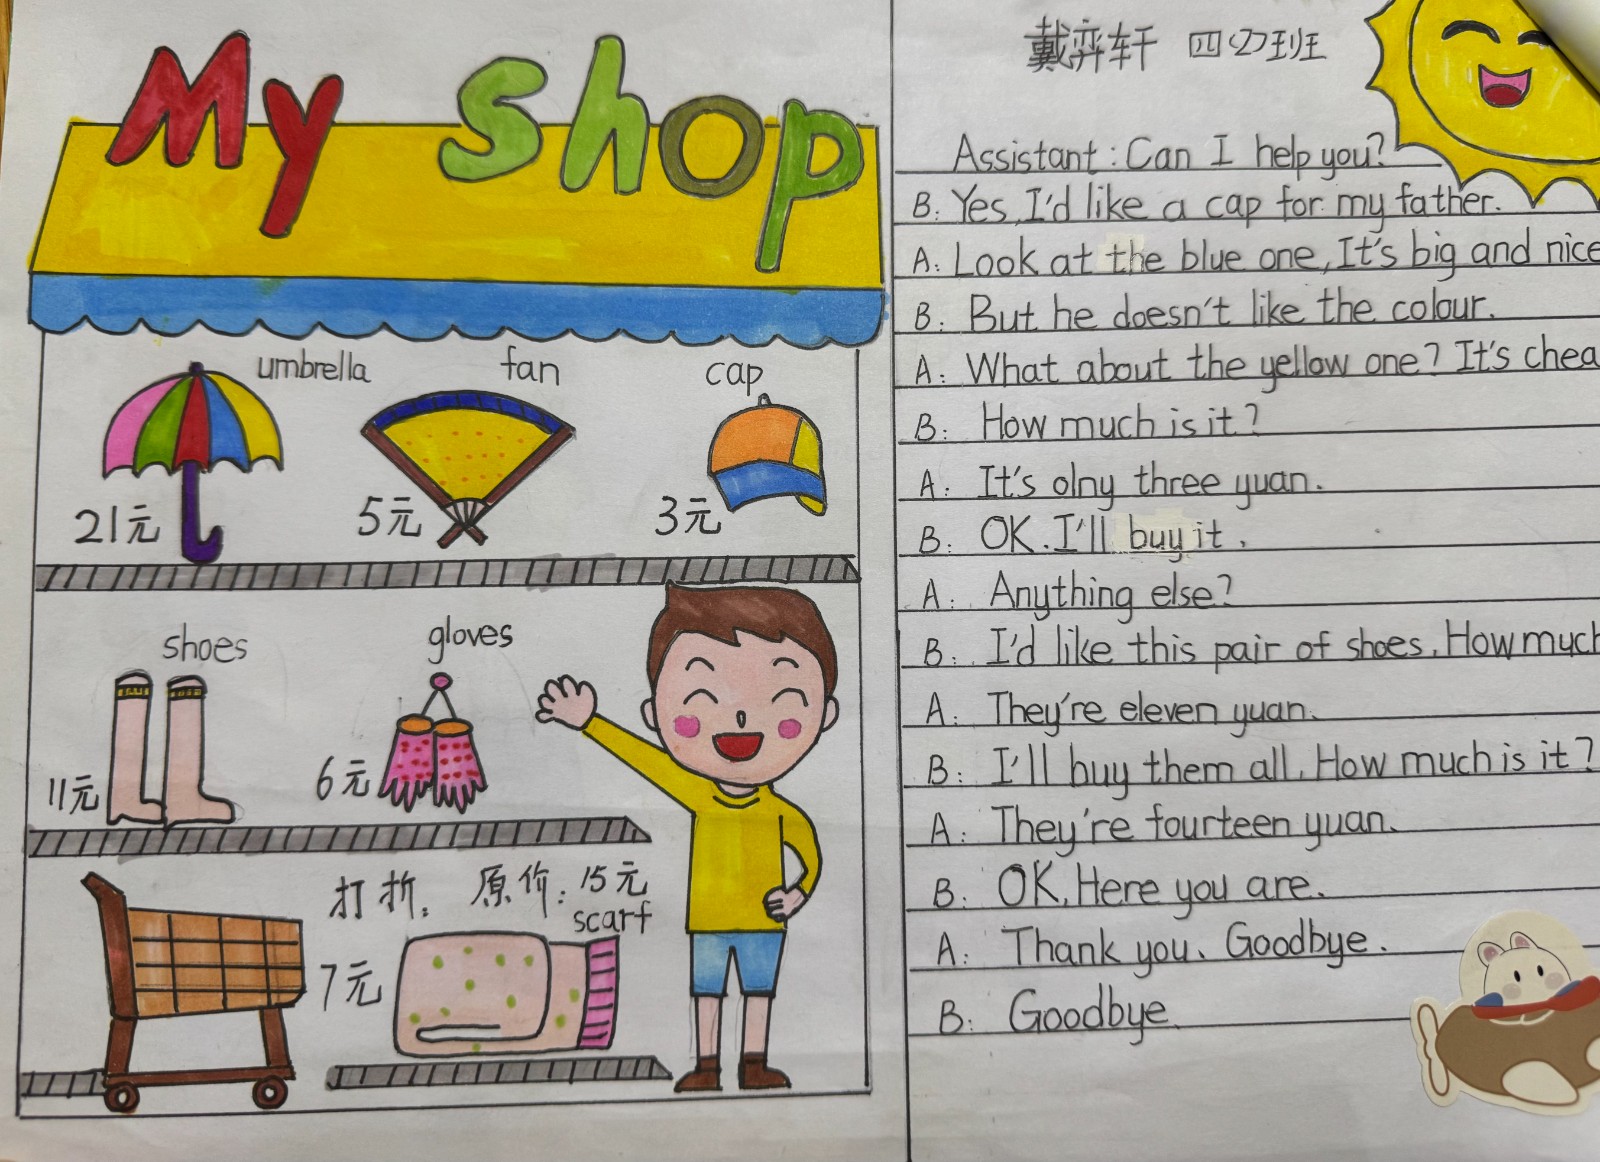 My shop
umbrella
fan
cap
21元
5元
3元
shoes
gloves
11元
6元
打折: 原价: 15元
scarf
7元
戴弈轩 四(2)班
Assistant: Can I help you?
B: Yes, I'd like a cap for my father.
A: Look at the blue one, It's big and nice
B: But he doesn't like the colour.
A: What about the yellow one? It's chea
B: How much is it?
A: It's olny three yuan.
B: OK. I'll buy it.
A: Anything else?
B: I'd like this pair of shoes. How much
A: They're eleven yuan.
B: I'll buy them all. How much is it?
A: They're fourteen yuan.
B: OK. Here you are.
A: Thank you. Goodbye.
B: Goodbye.